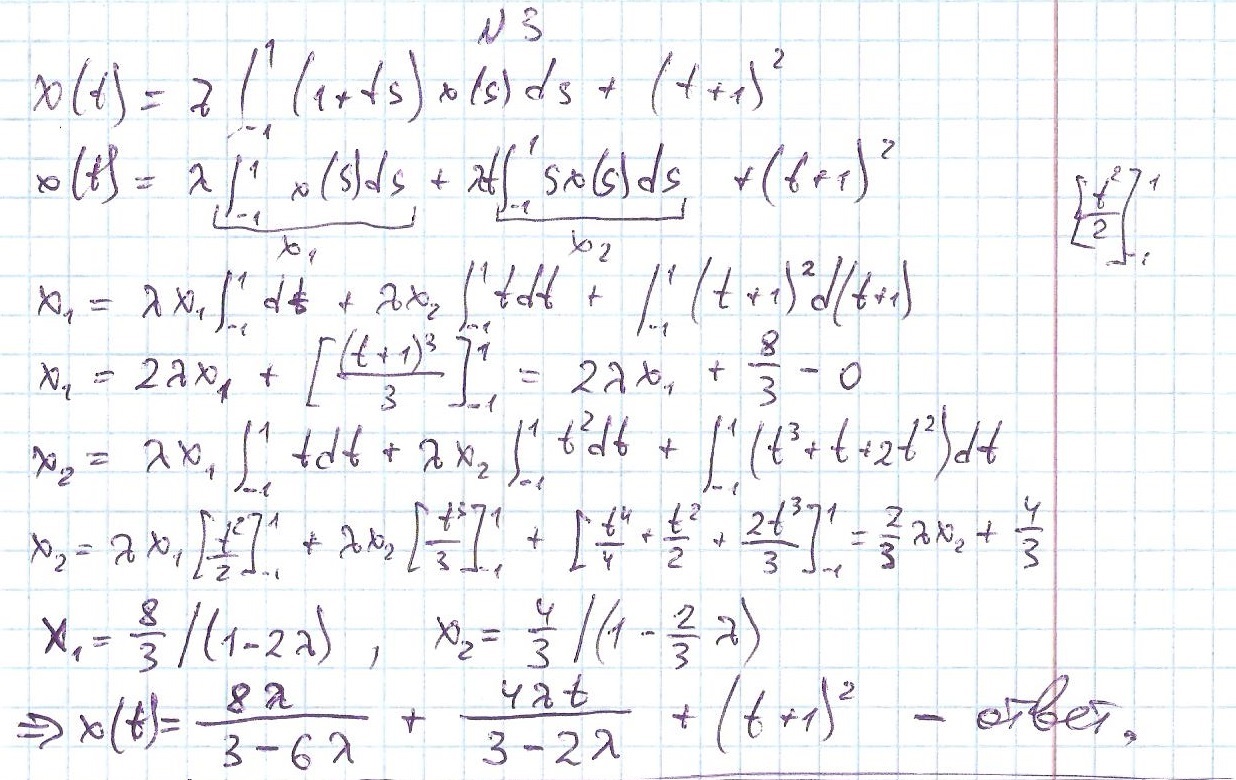 N 3
x(t) = λ ∫₋₁¹ (1+ts) x(s) ds + (t+1)²
x(t) = λ ∫₋₁¹ x(s)ds + λt ∫₋₁¹ sx(s)ds + (t+1)²
x₁ x₂
[t²/2]₋₁¹
x₁ = λx₁ ∫₋₁¹ dt + λx₂ ∫₋₁¹ tdt + ∫₋₁¹ (t+1)² d(t+1)
x₁ = 2λx₁ + [(t+1)³/3]₋₁¹ = 2λx₁ + 8/3 - 0
x₂ = λx₁ ∫₋₁¹ tdt + λx₂ ∫₋₁¹ t²dt + ∫₋₁¹ (t³+t+2t²)dt
x₂ = λx₁ [t²/2]₋₁¹ + λx₂ [t³/3]₋₁¹ + [t⁴/4 + t²/2 + 2t³/3]₋₁¹ = 2/3 λx₂ + 4/3
x₁ = 8/3 /(1-2λ), x₂ = 4/3 /(1 - 2/3 λ)
⇒ x(t) = 8λ/(3-6λ) + 4λt/(3-2λ) + (t+1)² - ответ.